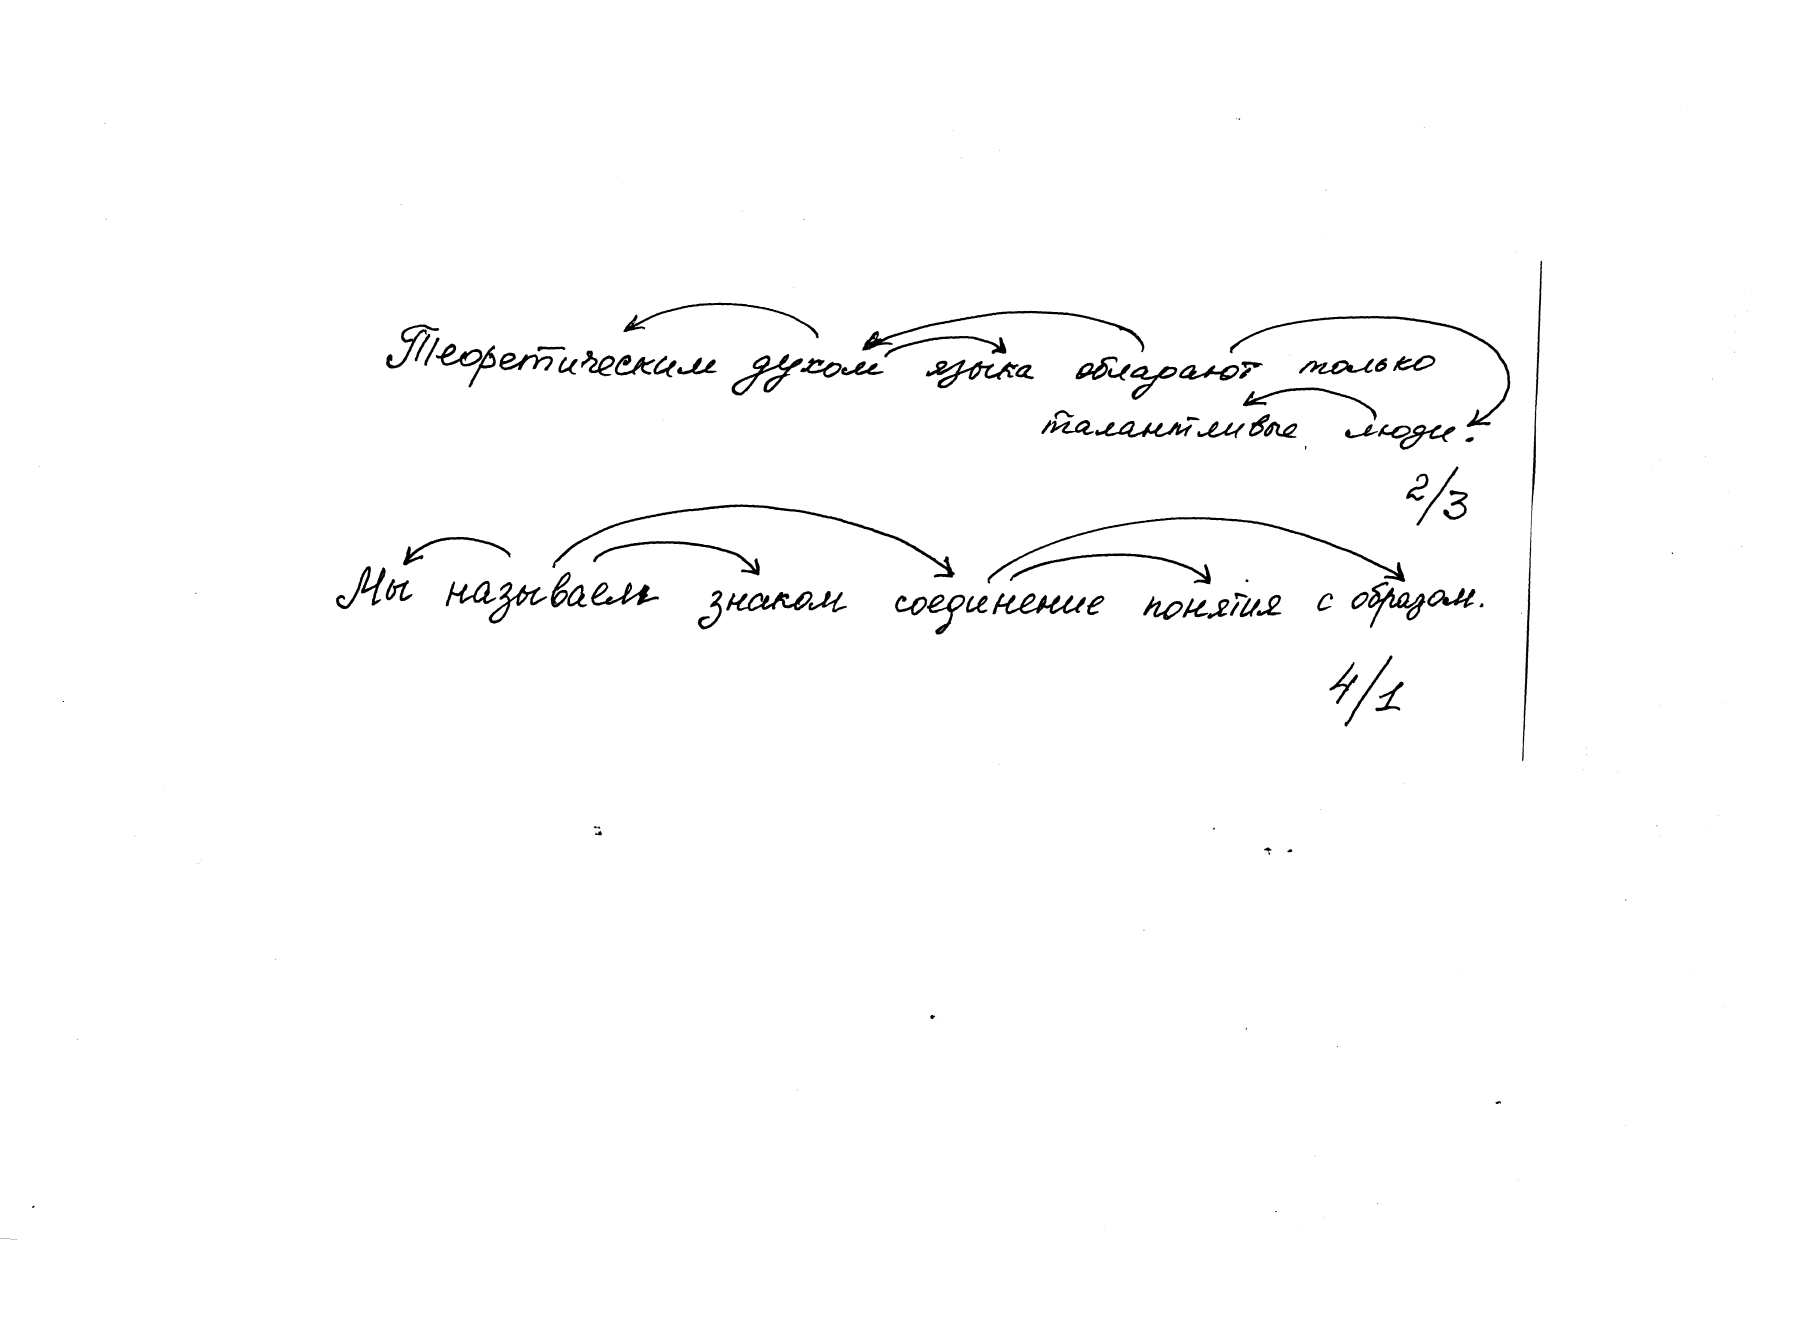 Теоретическим духом языка обладают только
талантливые люди.
2/3
Мы называем знаком соединение понятия с образом.
4/1